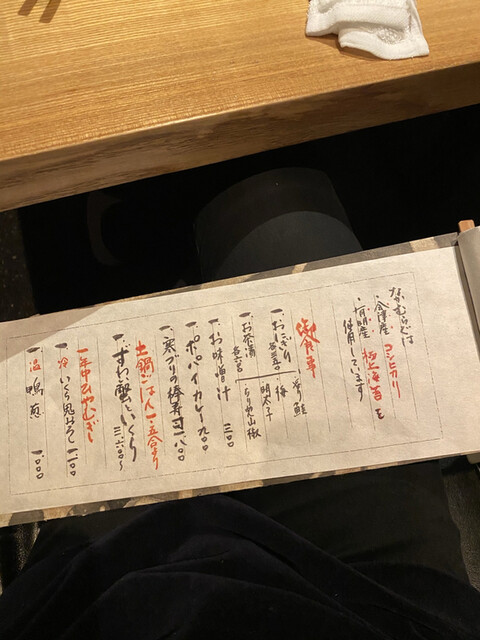 なかむらでは
・会津産 コシヒカリ
・有明産 極上海苔を
使用しています
御食事
一、おにぎり 各三五〇
一、お茶漬 各六〇〇
・焼鮭
・梅
・明太子
・ちりめん山椒
一、お味噌汁 三〇〇
一、ポパイカレー 九〇〇
一、寒ブリの棒寿司 一、八〇〇
土鍋ごはん 一、五合より
一、ずわい蟹といくら 三、六〇〇〜
一年中ひやむぎ
一、冷 いくら鬼おろし 一、一〇〇
一、温 鴨煎 一、一〇〇